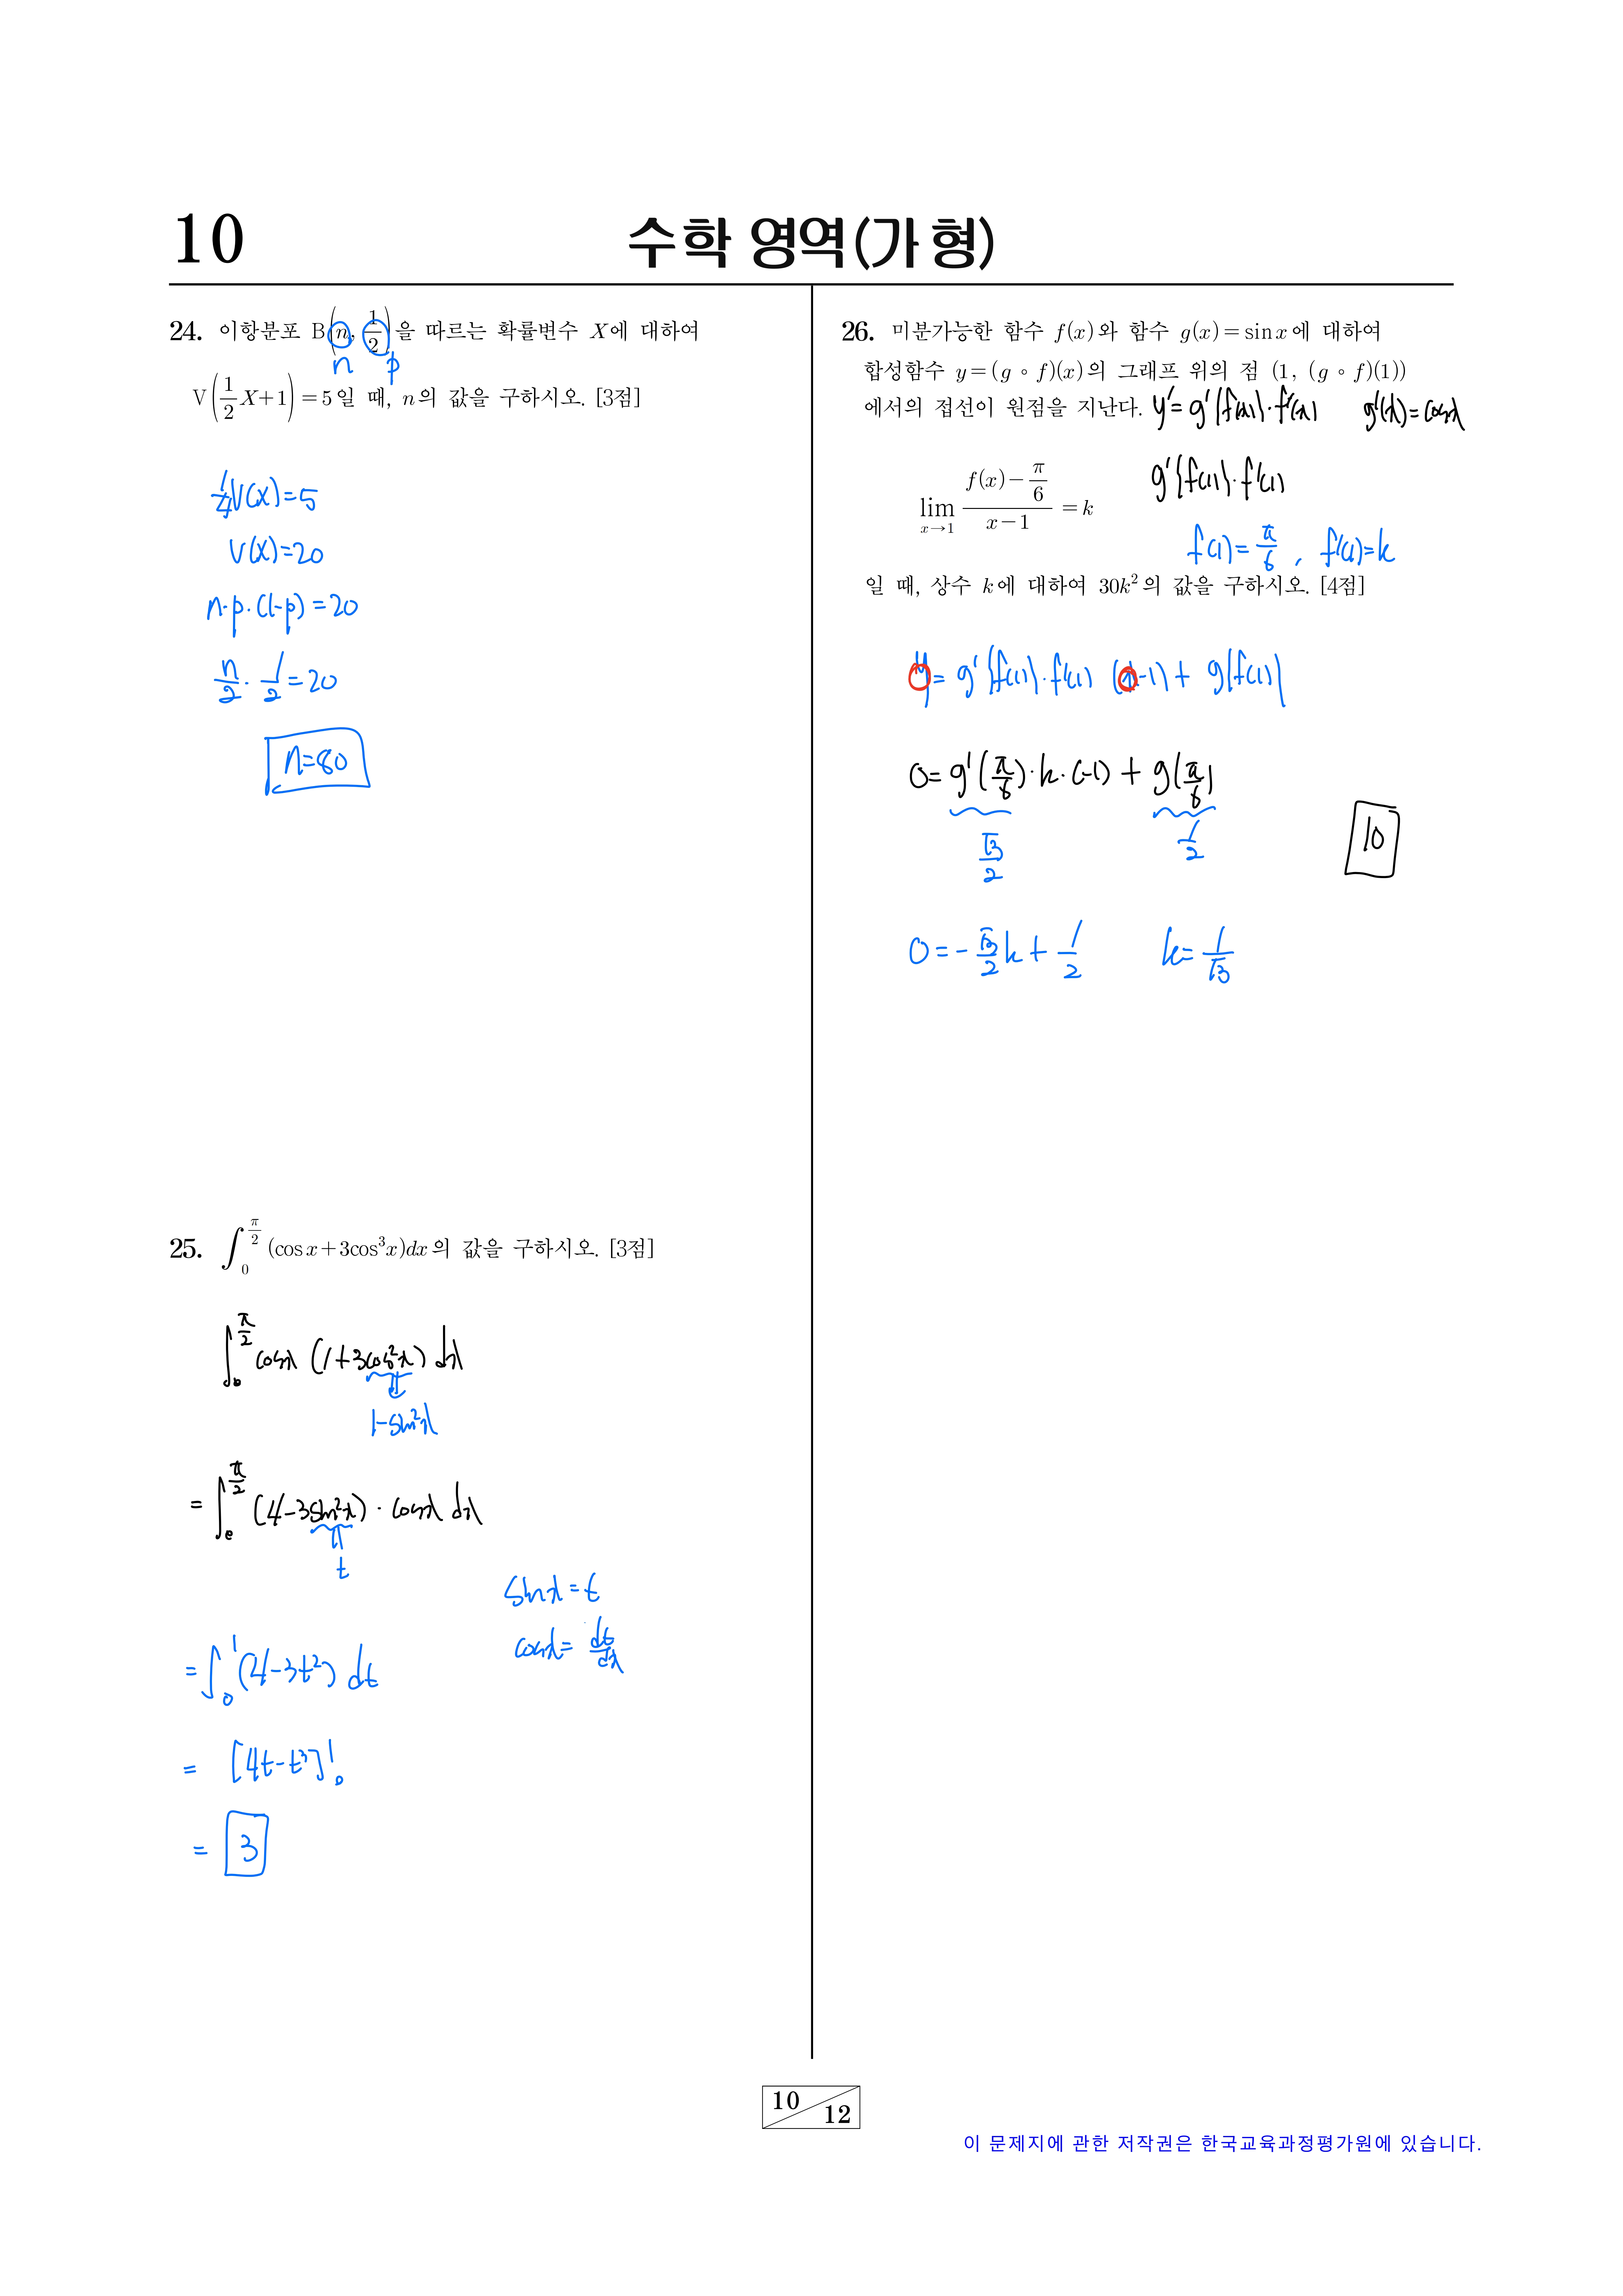 10
수학 영역(가 형)
24. 이항분포 B(n, 1/2)을 따르는 확률변수 X에 대하여
n p
V(1/2 X+1)=5일 때, n의 값을 구하시오. [3점]
1/4 V(X)=5
V(X)=20
n·p·(1-p)=20
n/2 · 1/2 =20
n=80
25. ∫_0^{π/2} (cos x+3cos³x)dx의 값을 구하시오. [3점]
∫_0^{π/2} cosx (1+3cos²x) dx
1-sin²x
= ∫_0^{π/2} (4-3sin²x) · cosx dx
t
sinx=t
cosx= dt/dx
= ∫_0^1 (4-3t²) dt
= [4t-t³]_0^1
= 3
26. 미분가능한 함수 f(x)와 함수 g(x)=sin x에 대하여
합성함수 y=(g∘f)(x)의 그래프 위의 점 (1, (g∘f)(1))
에서의 접선이 원점을 지난다. y'=g'(f(x))·f'(x) g'(x)=cosx
lim_{x→1} (f(x)-π/6)/(x-1) =k
g'{f(1)}·f'(1)
f(1)=π/6, f'(1)=k
일 때, 상수 k에 대하여 30k²의 값을 구하시오. [4점]
y= g'{f(1)}·f'(1) (x-1)+ g(f(1))
0= g'(π/6)·k·(-1) + g(π/6)
√3/2 1/2
10
0=-√3/2 k+ 1/2 k=1/√3
10/12
이 문제지에 관한 저작권은 한국교육과정평가원에 있습니다.